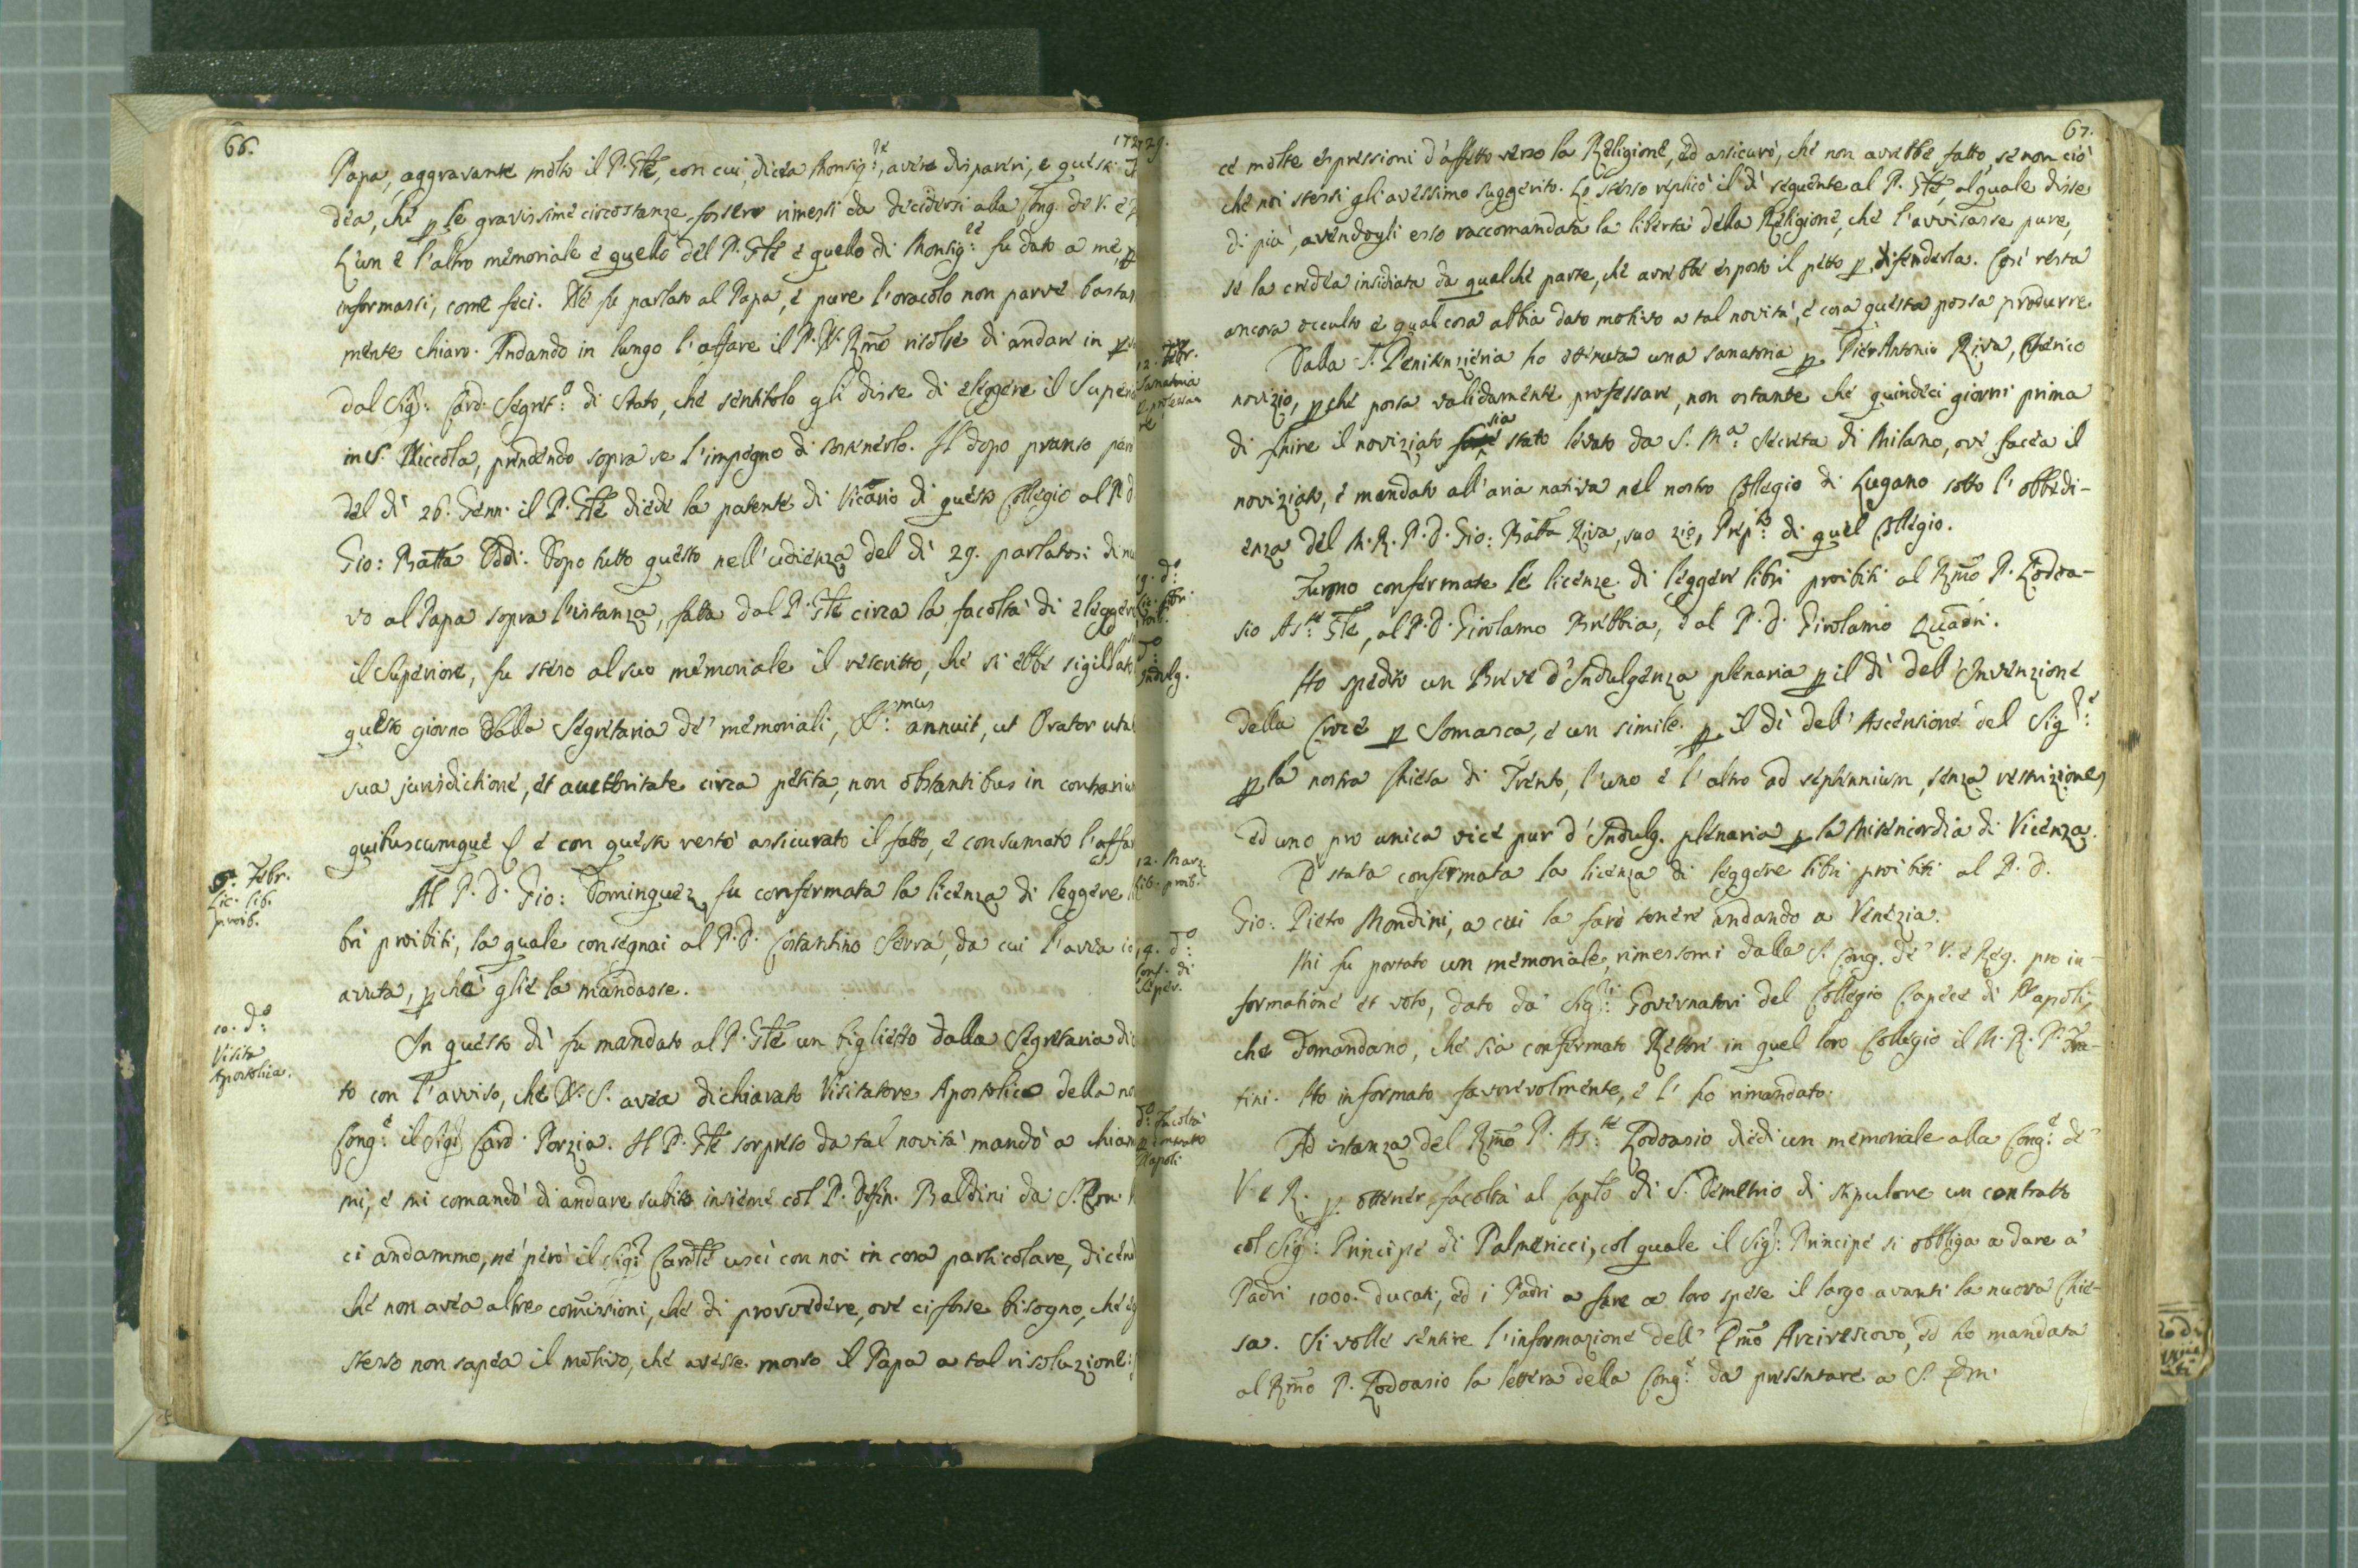 66.
1729.
Papa, aggravante molto il P. Gle, con cui, dicea Monsig.re, avere dispareri, e questi
dea, che p le gravissime circostanze, fossero rimessi da decidersi alla Cong. de V. e
L'un e l'altro memoriale e quello del P. Gle e quello di Monsig.re fu dato a me, p
informassi, come feci. Ne fu parlato al Papa, e pure l'oracolo non parve bastan
mente chiaro. Andando in lungo l'affare il P. N. Rmo risolse di andare in p
dal Sig.r Card. Segret.o di Stato, che sentitolo gli disse di eleggere il Superio
in S. Niccola, prendendo sopra se l'impegno di sostenerlo. Il dopo pranso per
del dì 26. Genn. il P. Gle diede la patente di Vicario di questo Collegio al P. d
Gio: Batta Oddi. Dopo tutto questo nell'udienza del dì 29. parlatosi di nu
vo al Papa sopra l'istanza, fatta dal P. Gle circa la facoltà di eleggere
il Superiore, fu steso al suo memoriale il rescritto, che si ebbe sigillato
questo giorno dalla Segretaria de' memoriali, S.mus annuit, ut Orator uta
sua jurisdictione, et auctoritate circa petita, non obstantibus in contrarium
quibuscumque e con questo restò assicurato il fatto, e consumato l'affar
5. Febr.
Lic. lib.
proib.
Al P. D. Gio: Dominguez fu confermata la licenza di leggere li
bri proibiti, la quale consegnai al P. D. Costantino Serra, da cui l'avea io
avuta, p che glie la mandasse.
10. d.o
Visita
Apostolica.
In questo dì fu mandato al P. Gle un biglietto dalla Segretaria di
to con l'avviso, che N. S. avea dichiarato Visitatore Apostolico della no
Cong.e il Sig.r Card. Porzia. Il P. Gle sorpreso da tal novità mandò a chiam
mi, e mi comandò di andare subito insieme col P. Defin. Baldini da S. Em.
ci andammo, ne però il Sig.r Cardle uscì con noi in cosa particolare, dicen
che non avea altre comissioni, che di provvedere, ove ci fosse bisogno, che eg
stesso non sapea il motivo, che avesse mosso il Papa a tal risoluzione:
67.
ce molte espressioni d'affetto verso la Religione, ed assicurò, che non avrebbe fatto, se non ciò
che noi stessi gli avessimo suggerito. Lo stesso replicò il dì seguente al P. Gle, al quale disse
di più, avendogli esso raccomandata la libertà della Religione, che l'avvisasse pure,
se la credea insidiata da qualche parte, che avrebbe esposto il petto p difenderla. Così resta
ancora occulto e qual cosa abbia dato motivo a tal novità, e cosa questa possa produrre
12. Febr.
Sanatoria
p professa
re
Dalla S. Penitenzieria ho ottenuta una sanatoria p Pier Antonio Riva, Cherico
novizio, p che possa validamente professare, non ostante che quindeci giorni prima
di finire il noviziato sia stato levato da S. M.a Secreta di Milano, ove facea il
noviziato, e mandato all'aria nativa nel nostro Collegio di Lugano sotto l'obbedi-
enza del M. R. P. D. Gio: Batta Riva, suo zio, Prep.to di quel Collegio.
19. d.o
Lic. libri
proib.
Furono confermate le licenze di leggere libri proibiti al Rmo P. Lodoa-
sio As.te Gle, al P. D. Girolamo Brebbia, e al P. D. Girolamo Quadri.
D.o
Indulg.
Ho spedito un Breve d'Indulgenza plenaria p il dì dell'Invenzione
della Croce p Somasca, e un simile p il dì dell'Ascensione del Sig.re
p la nostra Chiesa di Trento, l'uno e l'altro ad septennium, senza restrizione,
ed uno pro unica vice pur d'Indulg. plenaria p la Misericordia di Vicenza.
12. Marz.
Lib. proib.
È stata confermata la licenza di leggere libri proibiti al P. D.
Gio: Pietro Mondini, a cui la farò tenere andando a Venezia.
14. d.o
Conf. di
Caper.
Mi fu portato un memoriale, rimessomi dalla S. Cong. de V. e Reg. pro in-
formatione et voto, dato da Sig.ri Governatori del Collegio Capece di Napoli,
che domandano, che sia confermato Rettore in quel loro Collegio il M. R. P. Fra-
tini. Ho informato favorevolmente, e l'ho rimandato.
D.o Facoltà
p contratto
Napoli
Ad istanza del Rmo P. As.te Lodoasio diedi un memoriale alla Cong.e de
V e R. p ottener facoltà al Caplo di S. Demetrio di stipulare un contratto
col Sig.r Principe di Palmericci, col quale il Sig.r Principe si obbliga a dare a'
Padri 1000. ducati, ed i Padri a fare a loro spese il largo avanti la nuova Chie-
sa. Si volle sentire l'informazione dell'Emo Arcivescovo, ed ho mandata
al Rmo P. Lodoasio la lettera della Cong.e da presentare a S. Em.